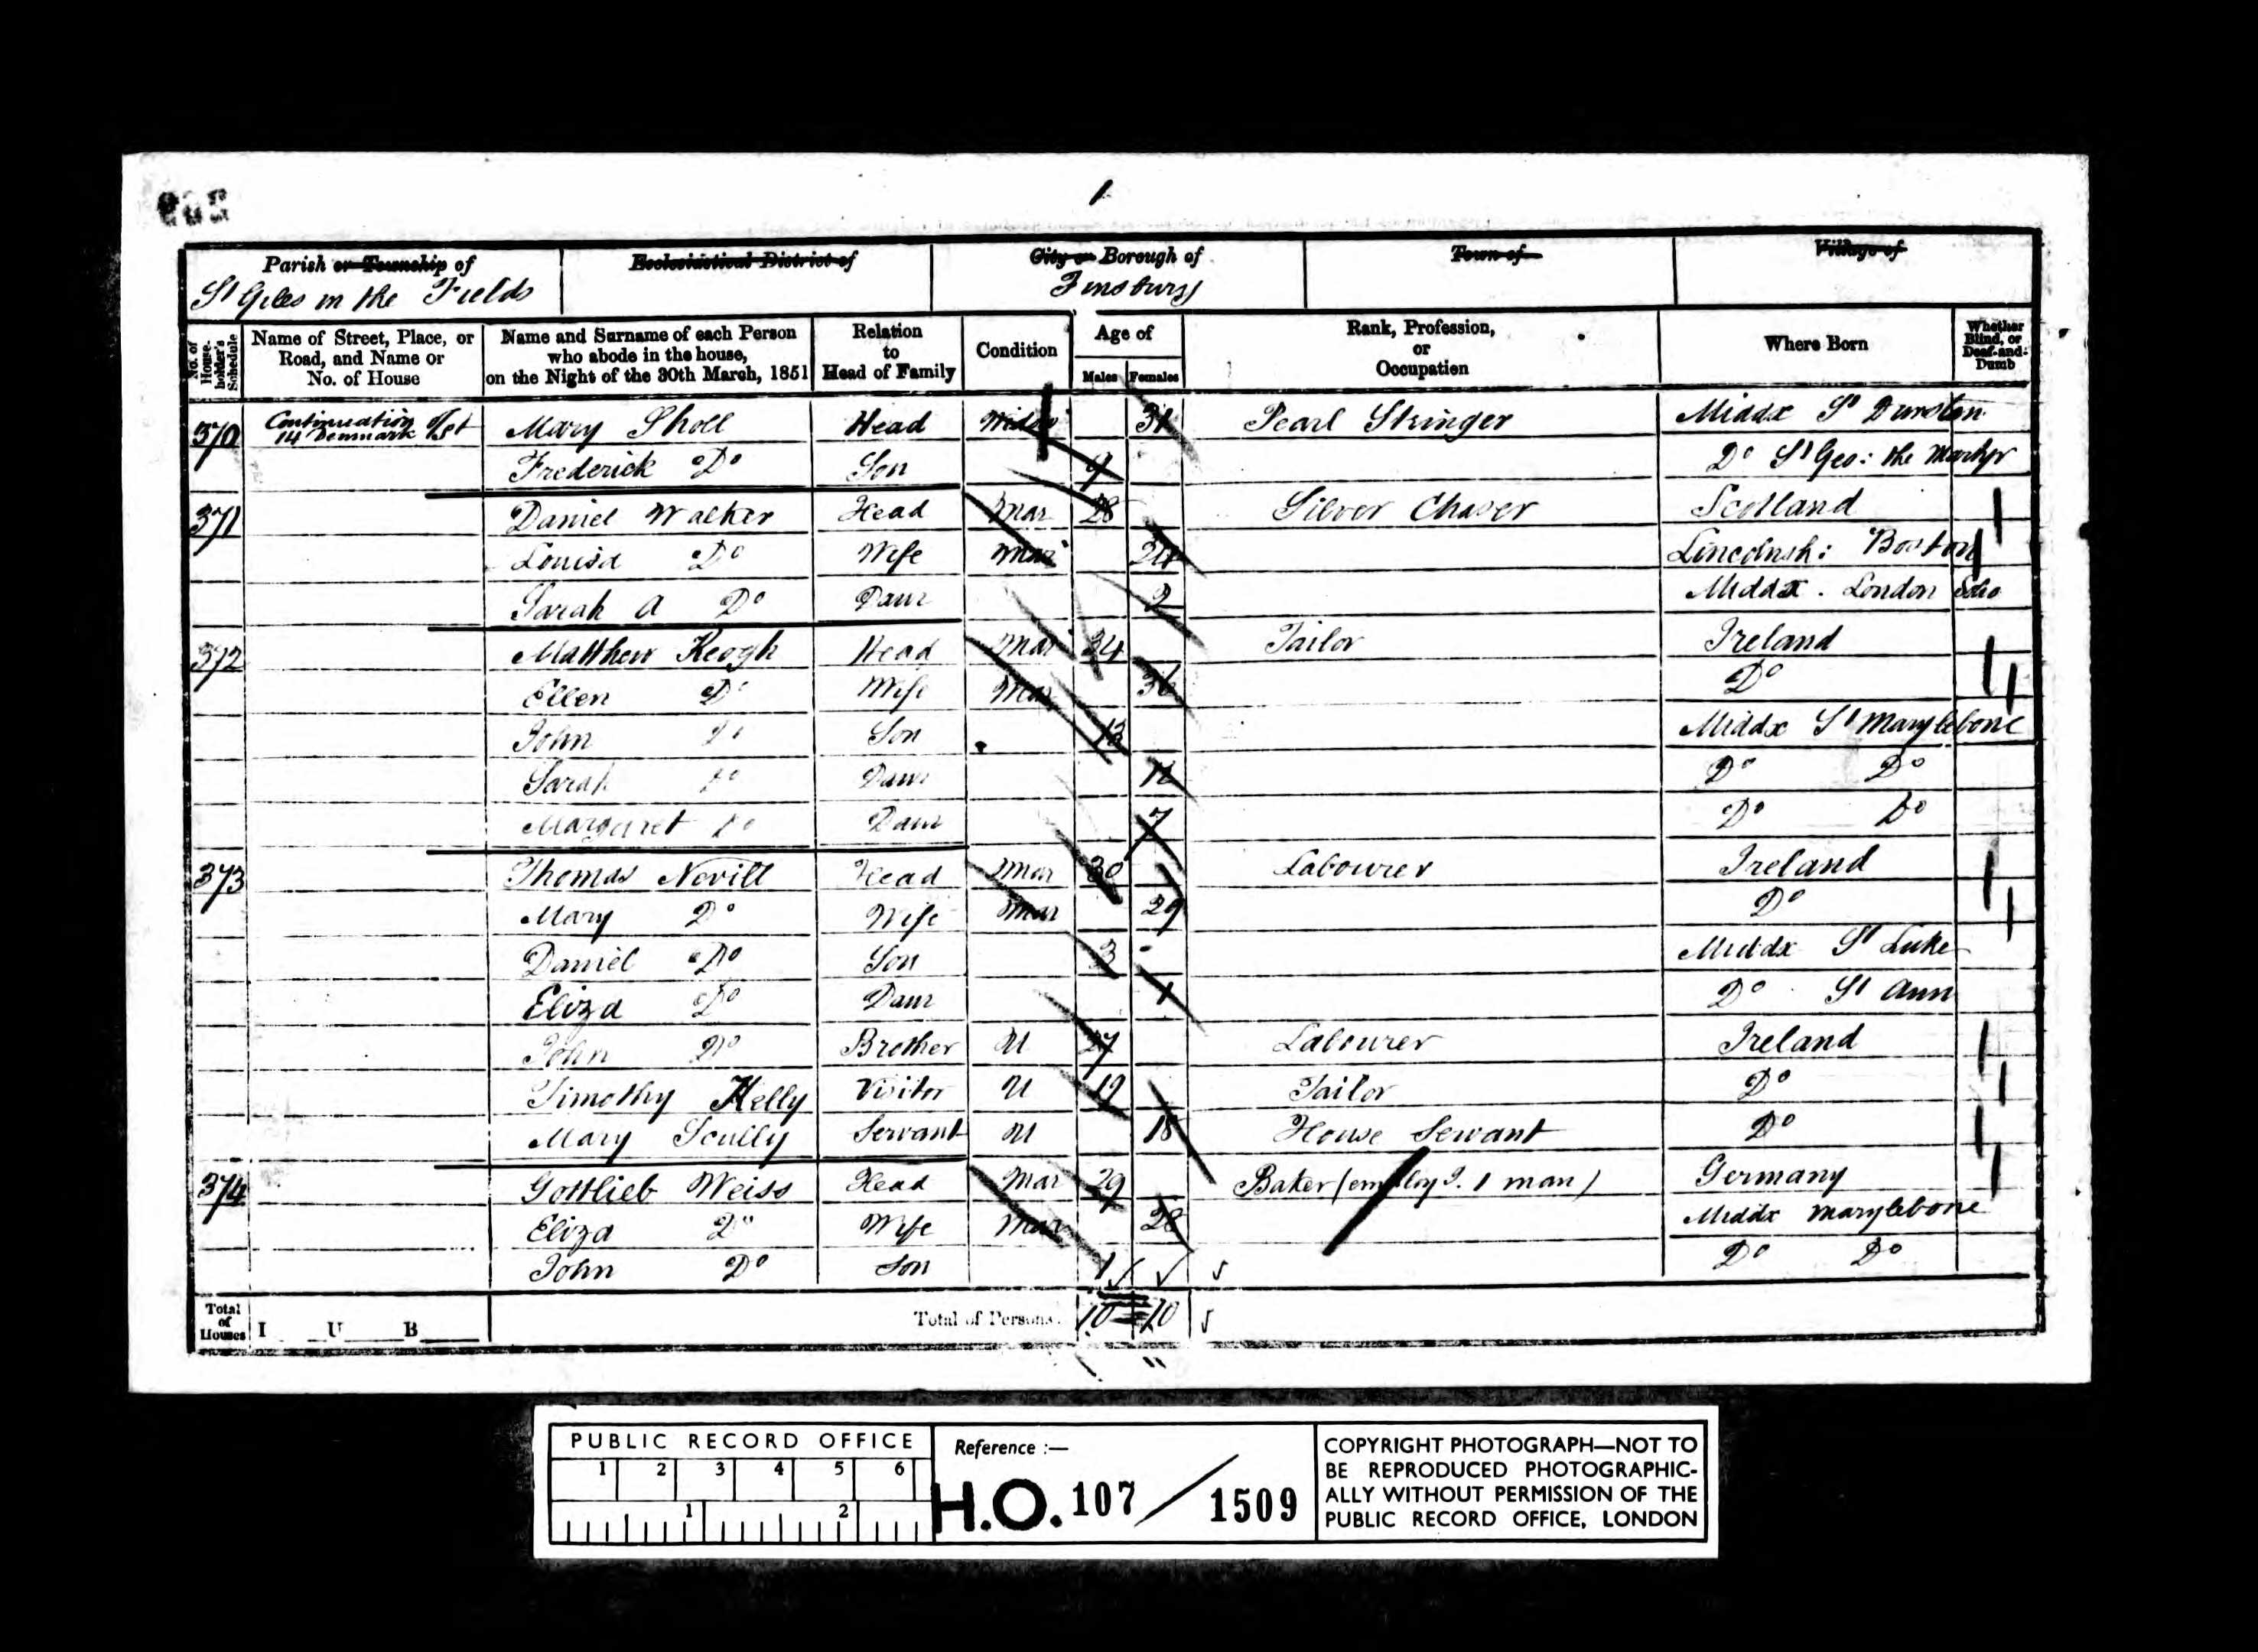 1
Parish or Township of
St Giles in the Fields
Ecclesiastical District of
City or Borough of
Finsbury
Town of
Village of
No. of House-holder's Schedule
Name of Street, Place, or Road, and Name or No. of House
Name and Surname of each Person who abode in the house, on the Night of the 30th March, 1851
Relation to Head of Family
Condition
Age of
Males Females
Rank, Profession, or Occupation
Where Born
Whether Blind, or Deaf-and-Dumb
370 Continuation of 14 Denmark St Mary Sholl Head Widow 31 Pearl Stringer Middx St Dunstan
Frederick Do Son 9 Do St Geo: the Martyr
371 Daniel Walker Head Mar 28 Silver Chaser Scotland
Louisa Do Wife Mar 24 Lincolnsh: Boston
Sarah A Do Daur 2 Middx. London Soho
372 Matthew Keogh Head Mar 34 Tailor Ireland
Ellen Do Wife Mar 36 Do
John Do Son 13 Middx St Marylebone
Sarah Do Daur Do Do
Margaret Do Daur 7 Do Do
373 Thomas Nevill Head Mar 30 Labourer Ireland
Mary Do Wife Mar 29 Do
Daniel Do Son 3 Middx St Luke
Eliza Do Daur 1 Do St Ann
John Do Brother U 27 Labourer Ireland
Timothy Kelly Visitor U 19 Tailor Do
Mary Scully Servant U 18 House Servant Do
374 Gottlieb Weiss Head Mar 29 Baker (employg. 1 man) Germany
Eliza Do Wife Mar 28 Middx Marylebone
John Do Son 1 Do Do
Total of Houses I U B
Total of Persons 10 10
PUBLIC RECORD OFFICE
1 2 3 4 5 6
1 2
Reference :—
H.O. 107 / 1509
COPYRIGHT PHOTOGRAPH—NOT TO
BE REPRODUCED PHOTOGRAPHIC-
ALLY WITHOUT PERMISSION OF THE
PUBLIC RECORD OFFICE, LONDON